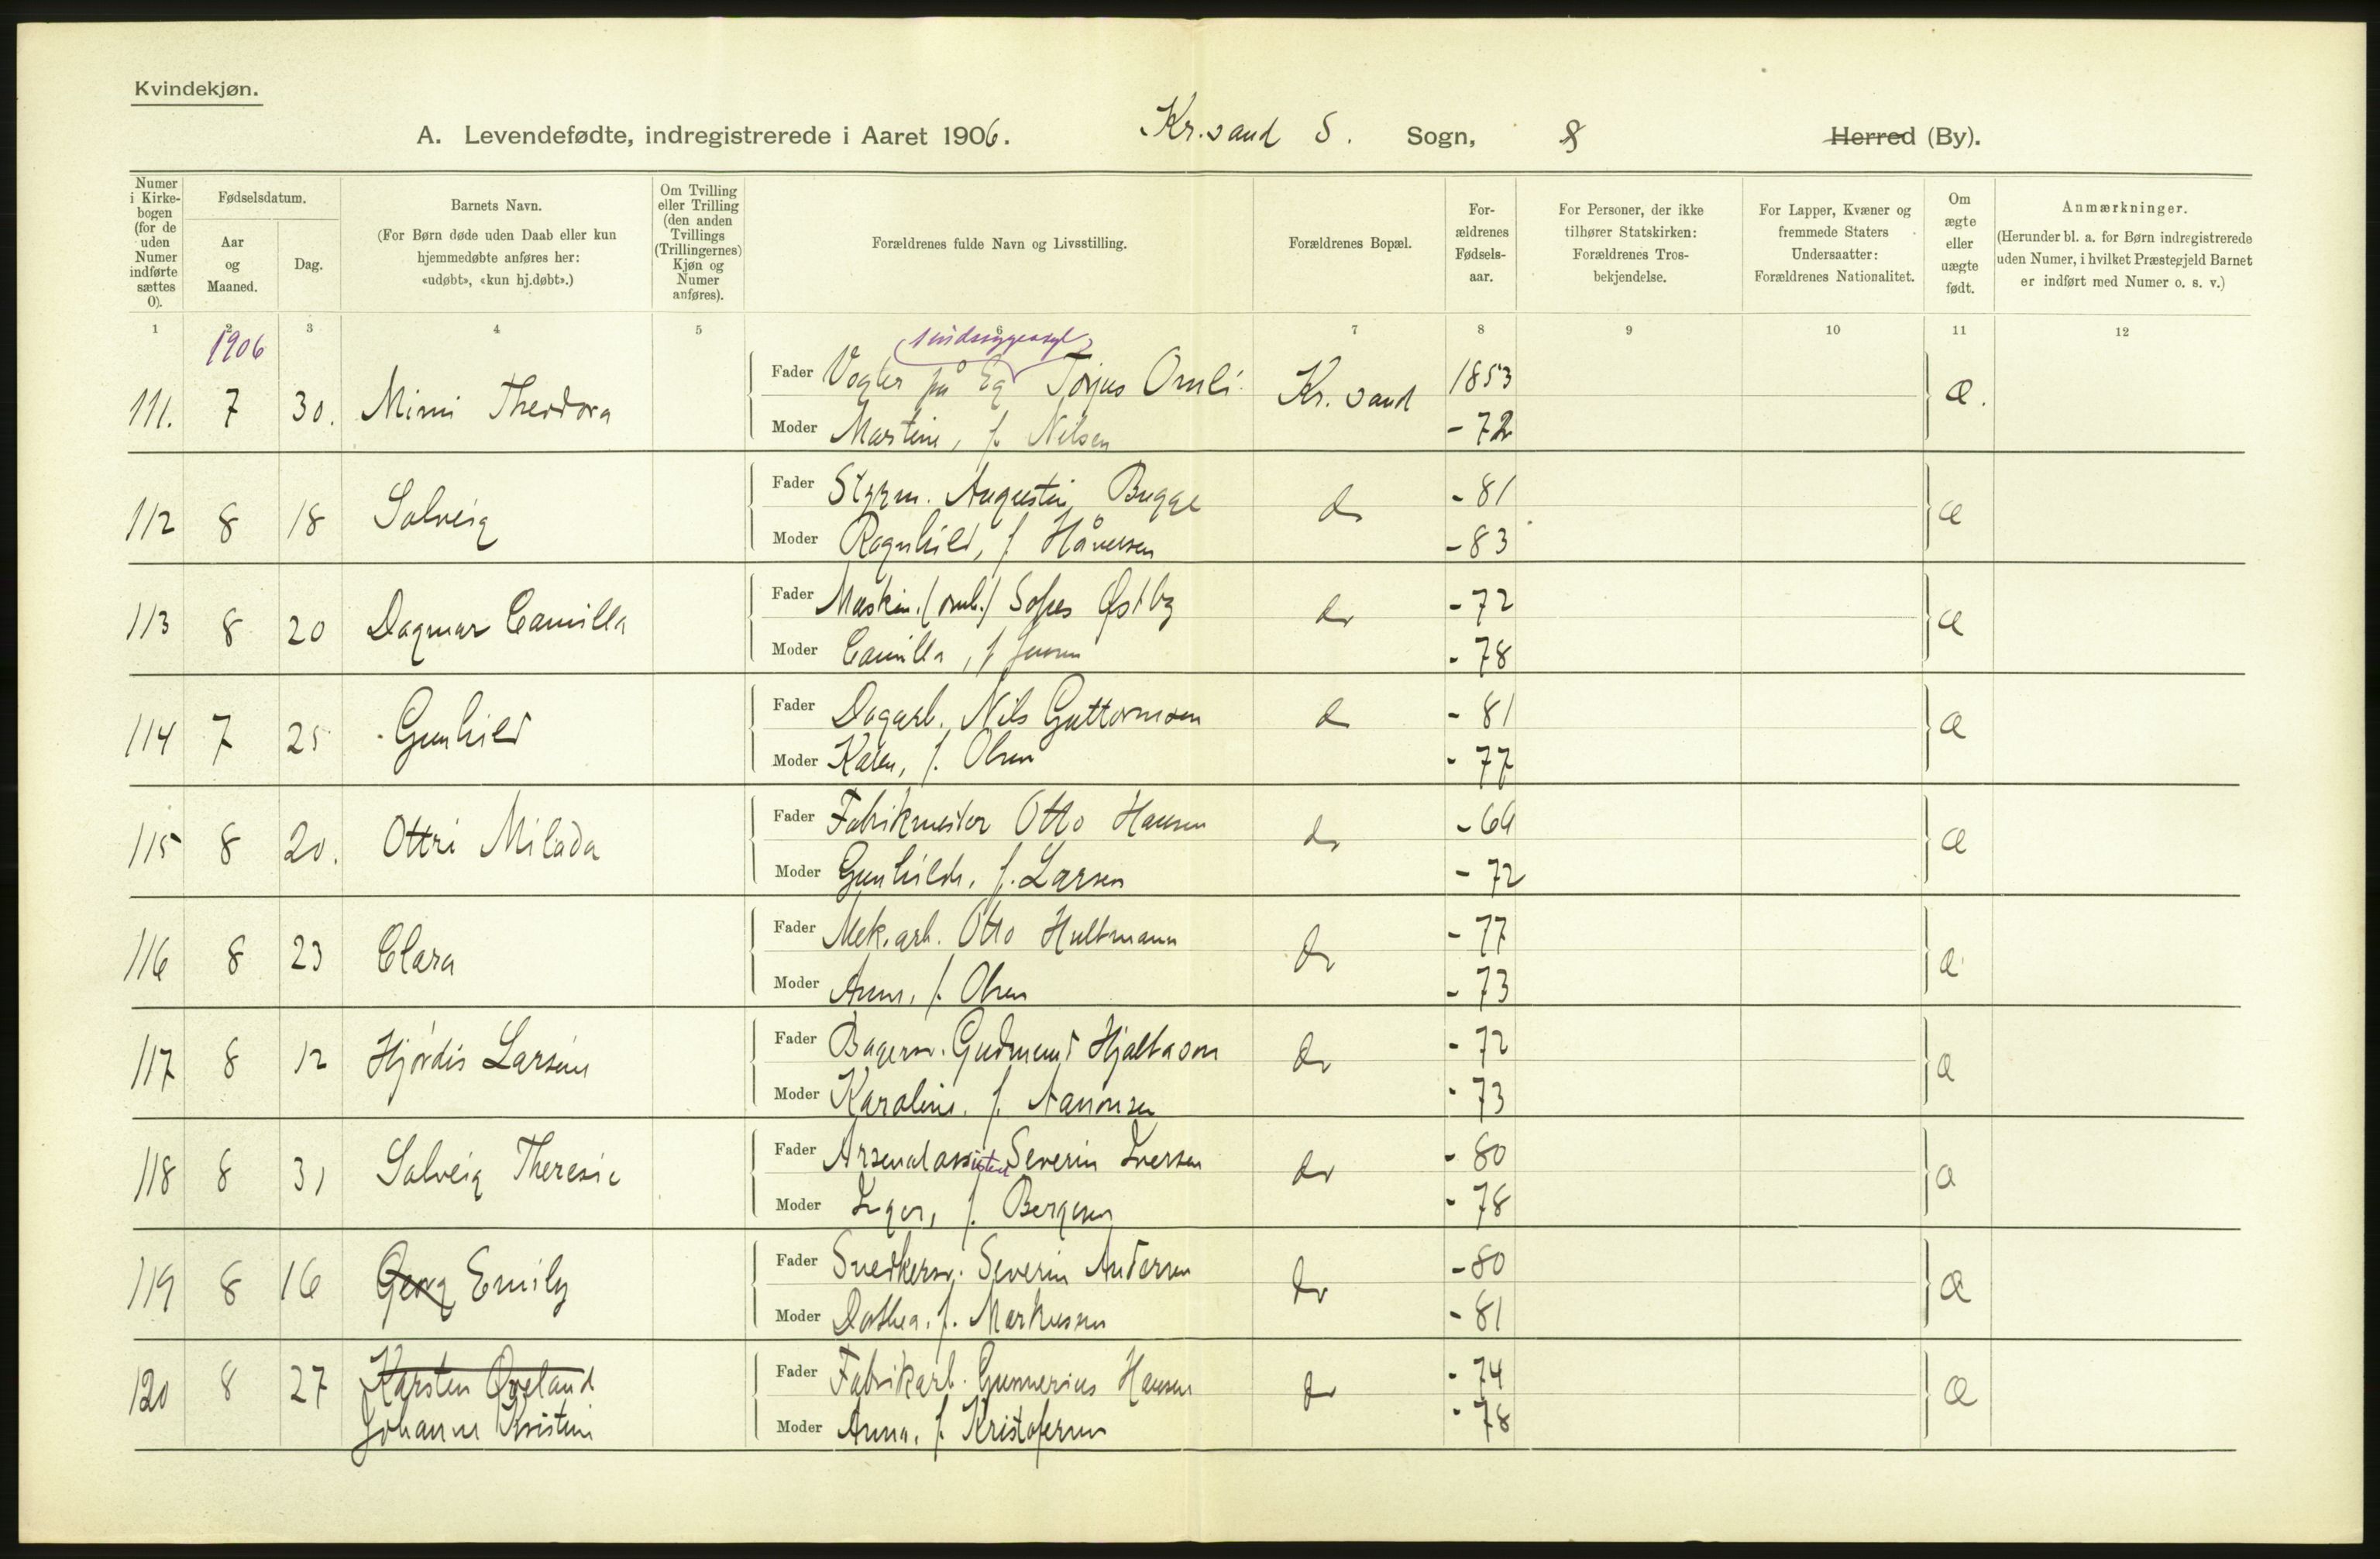 Kvindekjøn.
A. Levendefødte, indregistrerede i Aaret 1906. Kr.sand S. Sogn, 8 Herred (By).
Numer i Kirkebogen (for de uden Numer indførte sættes 0).
Fødselsdatum.
Aar og Maaned.
Dag.
Barnets Navn.
(For Børn døde uden Daab eller kun hjemmedøbte anføres her: «udøbt», «kun hj.døbt».)
Om Tvilling eller Trilling (den anden Tvillings (Trillingernes) Kjøn og Numer anføres).
Forældrenes fulde Navn og Livsstilling.
Forældrenes Bopæl.
Forældrenes Fødselsaar.
For Personer, der ikke tilhører Statskirken: Forældrenes Trosbekjendelse.
For Lapper, Kvæner og fremmede Staters Undersaatter: Forældrenes Nationalitet.
Om ægte eller uægte født.
Anmærkninger.
(Herunder bl. a. for Børn indregistrerede uden Numer, i hvilket Præstegjeld Barnet er indført med Numer o. s. v.)
1 2 3 4 5 6 7 8 9 10 11 12
1906 sindssygeasyl
111. 7 30. Mimi Theodora Fader Vogter på Eg Torjus Omli Kr. sand 1853 æ.
Moder Martine, f. Nilsen - 72
112 8 18 Solveig Fader Styrm. Augustin Bugge do - 81 æ
Moder Ragnhild, f Håversen - 83
113 8 20 Dagmar Camilla Fader Maskin.(omb.) Sofus Østby do - 72 æ
Moder Camilla, f Jensen - 78
114 7 25 Gunhild Fader Dagarb. Nils Guttormsen do - 81 æ
Moder Karen, f. Olsen - 77
115 8 20. Ottri Milada Fader Fabrikmester Otto Hansen do - 64 æ
Moder Gunhilde, f. Larsen - 72
116 8 23 Clara Fader Mek.arb. Otto Hultmann do - 77 æ
Moder Anna, f. Olsen - 73
117 8 12 Hjørdis Larsine Fader Bagersv. Gudmund Hjaltason do - 72 æ
Moder Karoline, f. Aanonsen - 73
118 8 31 Solveig Theresie Fader Arsenalassistent Severin Iversen do - 80 æ
Moder Inger, f. Bergesen - 78
119 8 16 Georg Emily Fader Snedkersv. Severin Andersen do - 80 æ
Moder Dorthea, f. Markussen - 81
120 8 27 Karsten Øveland Fader Fabrikarb. Gunnerius Hansen do - 74 æ
Johanne Kristine Moder Anna, f. Kristofersen - 78